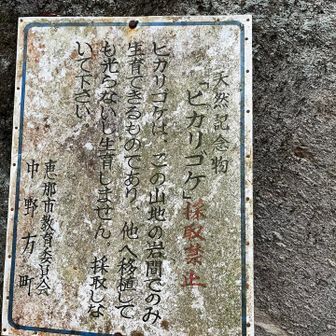 天然記念物
「ヒカリゴケ」採取禁止
ヒカリゴケは、この山地の岩間でのみ
生育できるものであり、他へ移植して
も光らないし生育しません。採取しな
いで下さい
恵那市教育委員会
中野方町